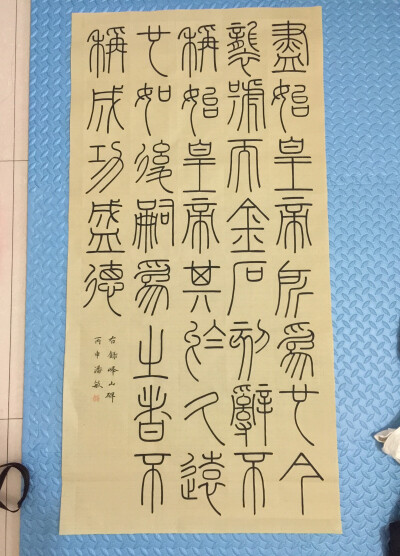 盡始皇帝所爲也今
襲號而金石刻辭不
稱始皇帝其於久遠
也如後嗣爲之者不
稱成功盛德
右錄峄山碑
丙申潘敏